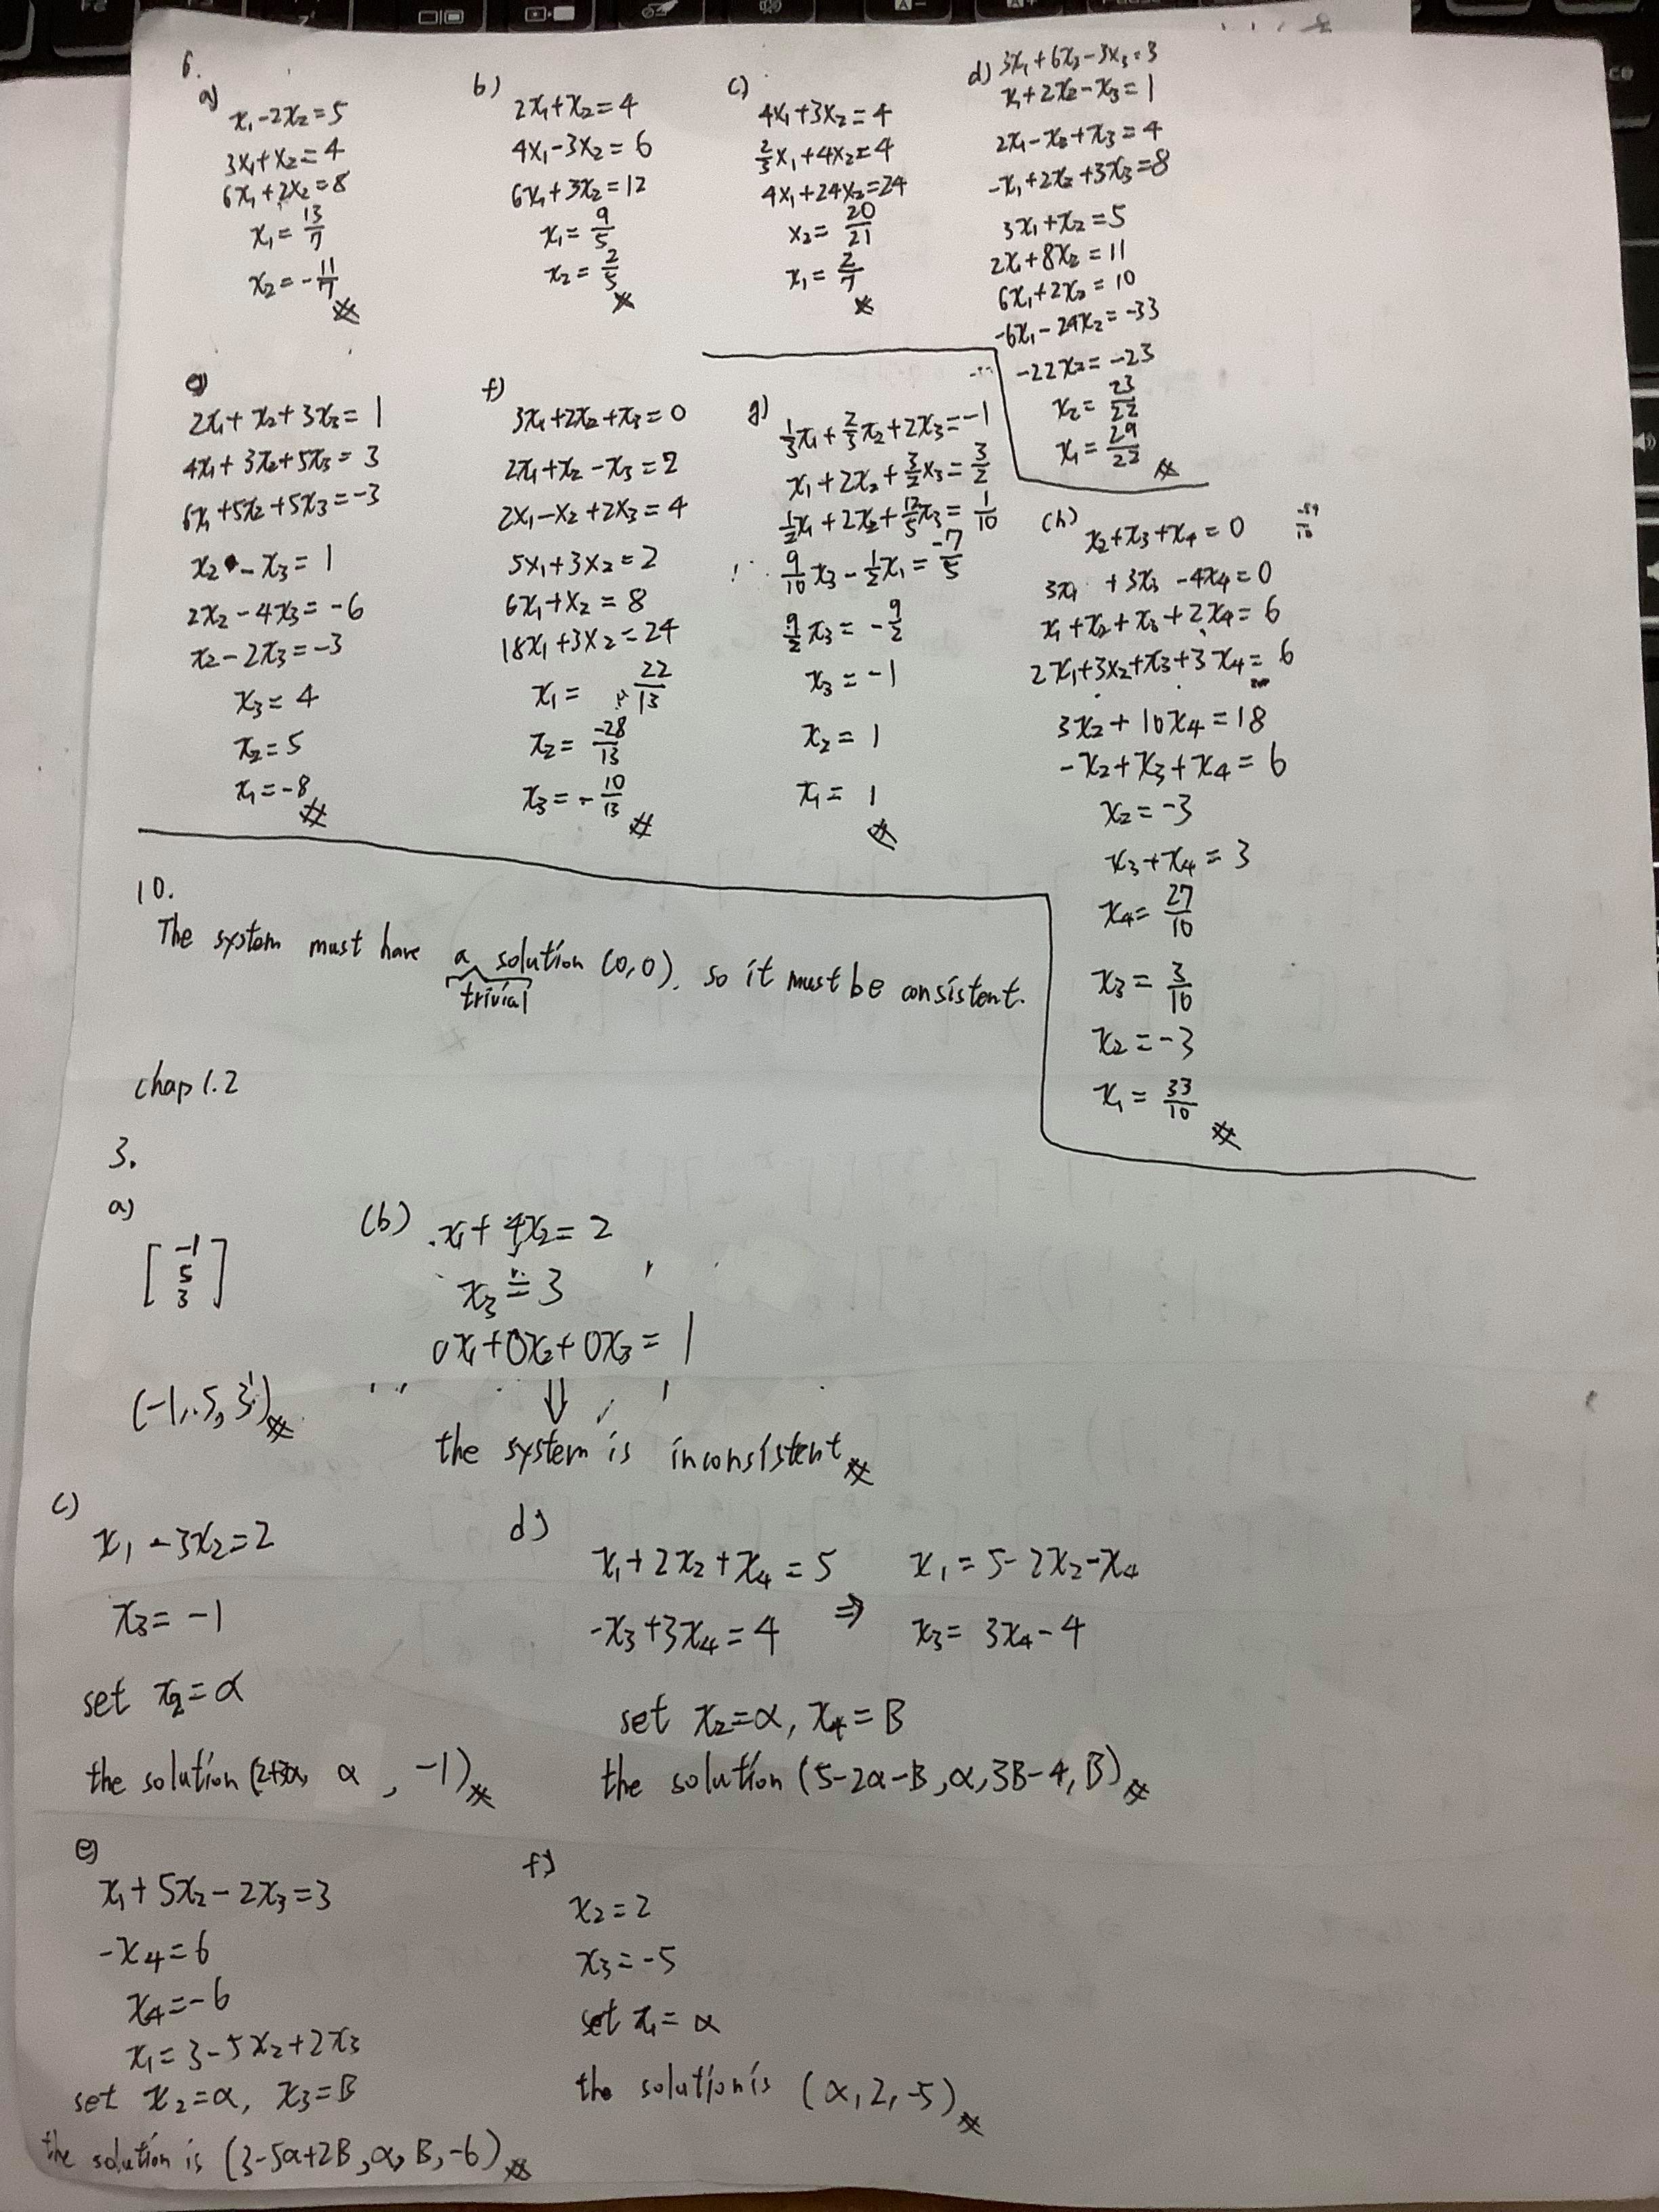 6.
a)
x₁-2x₂=5
3x₁+x₂=4
6x₁+2x₂=8
x₁=13/7
x₂=-11/7
b)
2x₁+x₂=4
4x₁-3x₂=6
6x₁+3x₂=12
x₁=9/5
x₂=2/5
c)
4x₁+3x₂=4
2/3x₁+4x₂=4
4x₁+24x₂=24
x₂=20/21
x₁=2/7
d) 3x₁+6x₂-3x₃=3
x₁+2x₂-x₃=1
2x₁-x₂+x₃=4
-x₁+2x₂+3x₃=8
3x₁+x₂=5
2x₁+8x₂=11
6x₁+2x₂=10
-6x₁-24x₂=-33
-22x₂=-23
x₂=23/22
x₁=29/22
e)
2x₁+x₂+3x₃=1
4x₁+3x₂+5x₃=3
6x₁+5x₂+5x₃=-3
x₂-x₃=1
2x₂-4x₃=-6
x₂-2x₃=-3
x₃=4
x₂=5
x₁=-8
f)
3x₁+2x₂+x₃=0
2x₁+x₂-x₃=2
2x₁-x₂+2x₃=4
5x₁+3x₂=2
6x₁+x₂=8
18x₁+3x₂=24
x₁=22/13
x₂=-28/13
x₃=-10/13
g)
1/3x₁+2/3x₂+2x₃=-1
x₁+2x₂+3/2x₃=3/2
1/2x₁+2x₂+12/5x₃=1/10
9/10x₃-1/2x₁=-7/5
9/2x₃=-9/2
x₃=-1
x₂=1
x₁=1
(h)
x₂+x₃+x₄=0
3x₁+3x₃-4x₄=0
x₁+x₂+x₃+2x₄=6
2x₁+3x₂+x₃+3x₄=6
3x₂+10x₄=18
-x₂+x₃+x₄=6
x₂=-3
x₃+x₄=3
x₄=27/10
x₃=3/10
x₂=-3
x₁=33/10
10.
The system must have a solution (0,0), so it must be consistent.
trivial
chap 1.2
3.
a)
[-1
5
3]
(-1,5,3)
(b) x₁+4x₂=2
x₃=3
0x₁+0x₂+0x₃=1
⇓
the system is inconsistent
c)
x₁-3x₂=2
x₃=-1
set x₂=α
the solution (2+3α, α, -1)
d)
x₁+2x₂+x₄=5 ⇒ x₁=5-2x₂-x₄
-x₃+3x₄=4 x₃=3x₄-4
set x₂=α, x₄=B
the solution (5-2α-B, α, 3B-4, B)
e)
x₁+5x₂-2x₃=3
-x₄=6
x₄=-6
x₁=3-5x₂+2x₃
set x₂=α, x₃=B
the solution is (3-5α+2B, α, B, -6)
f)
x₂=2
x₃=-5
set x₁=α
the solution is (α, 2, -5)